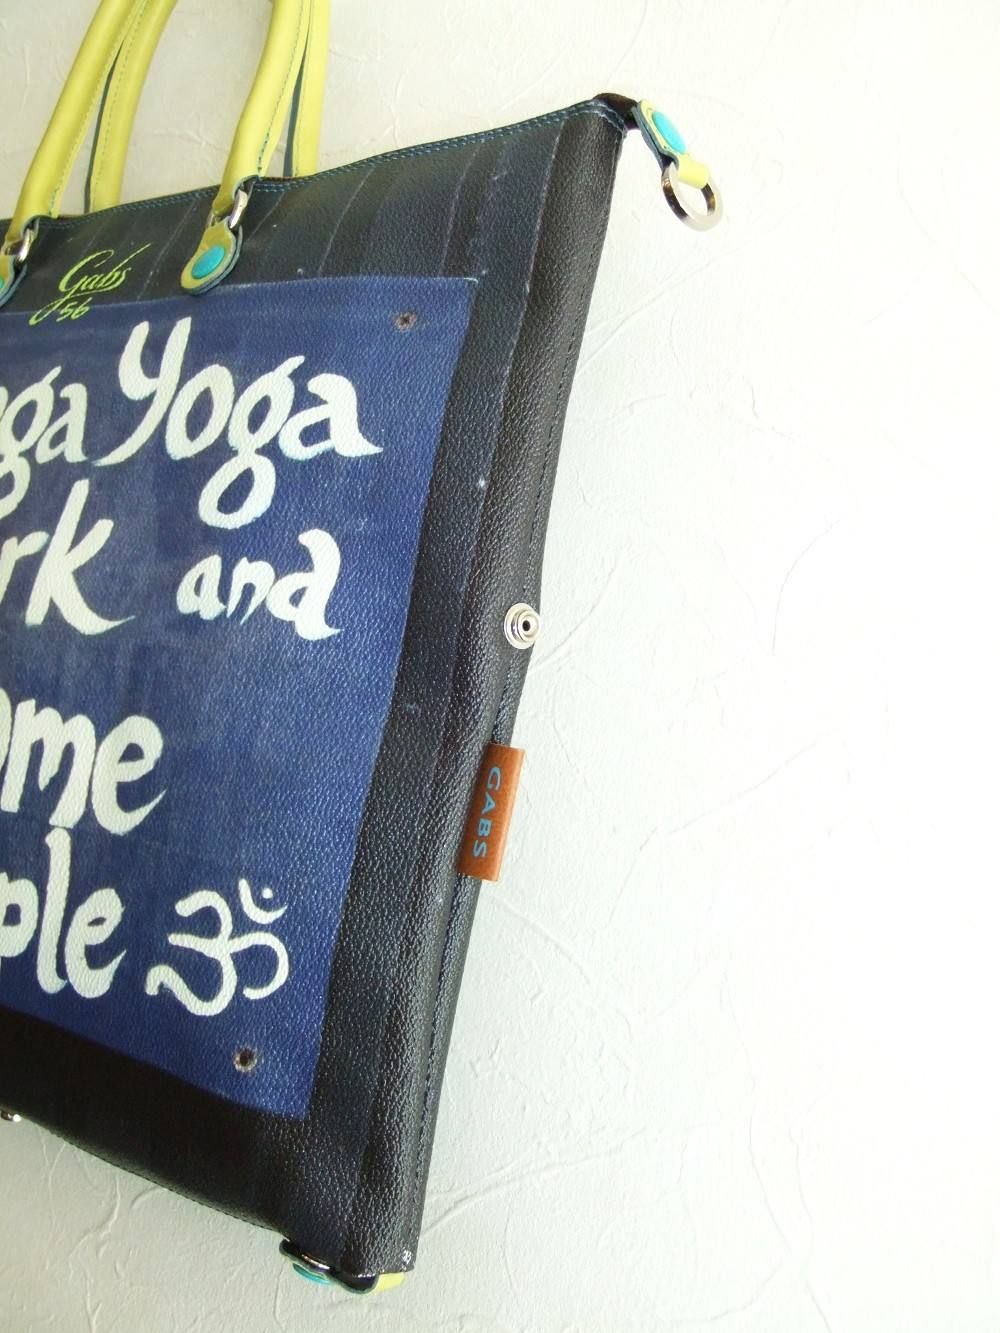 Gabs
56
oga Yoga
rk and
ome
ple ॐ
GABS